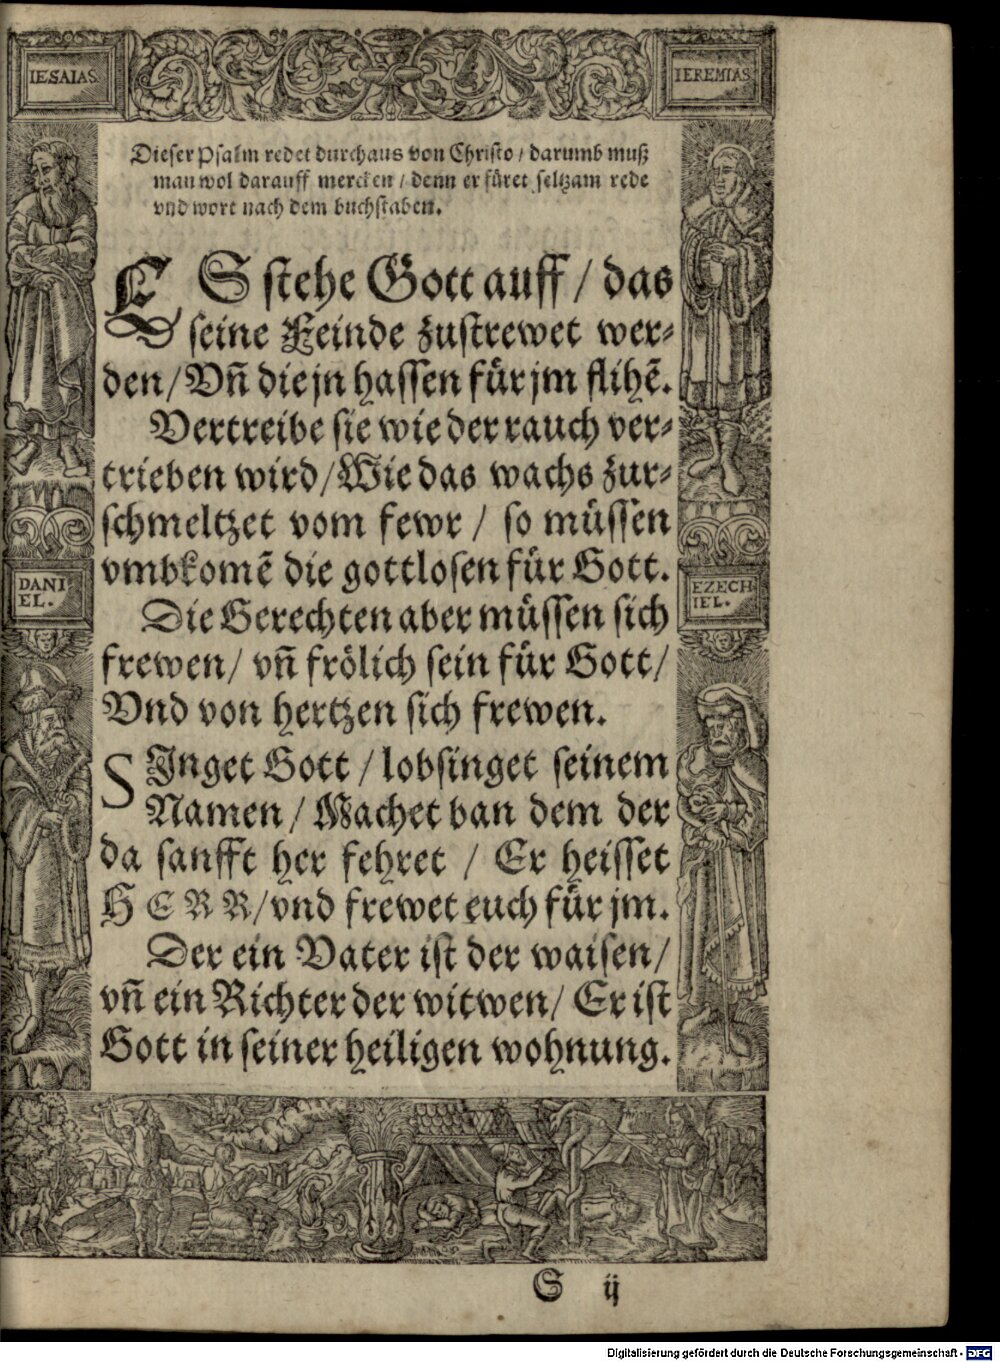 IESAIAS
IEREMIAS
Dieser Psalm redet durchaus von Christo / darumb muß
man wol darauff mercken / denn er füret seltzam rede
vnd wort nach dem buchstaben.
ES stehe Gott auff / das
seine Feinde zustrewet wer⸗
den / Vñ die jn hassen für jm flihẽ.
Vertreibe sie wie der rauch ver⸗
trieben wird / Wie das wachs zur⸗
schmeltzet vom fewr / so müssen
vmbkomẽ die gottlosen für Gott.
Die Gerechten aber müssen sich
frewen / vñ frölich sein für Gott /
Vnd von hertzen sich frewen.
SInget Gott / lobsinget seinem
Namen / Machet ban dem der
da sanfft her fehret / Er heisset
HERR / vnd frewet euch für jm.
Der ein Vater ist der waisen /
vñ ein Richter der witwen / Er ist
Gott in seiner heiligen wohnung.
DANI
EL.
EZECH
IEL.
S ij
Digitalisierung gefördert durch die Deutsche Forschungsgemeinschaft - DFG